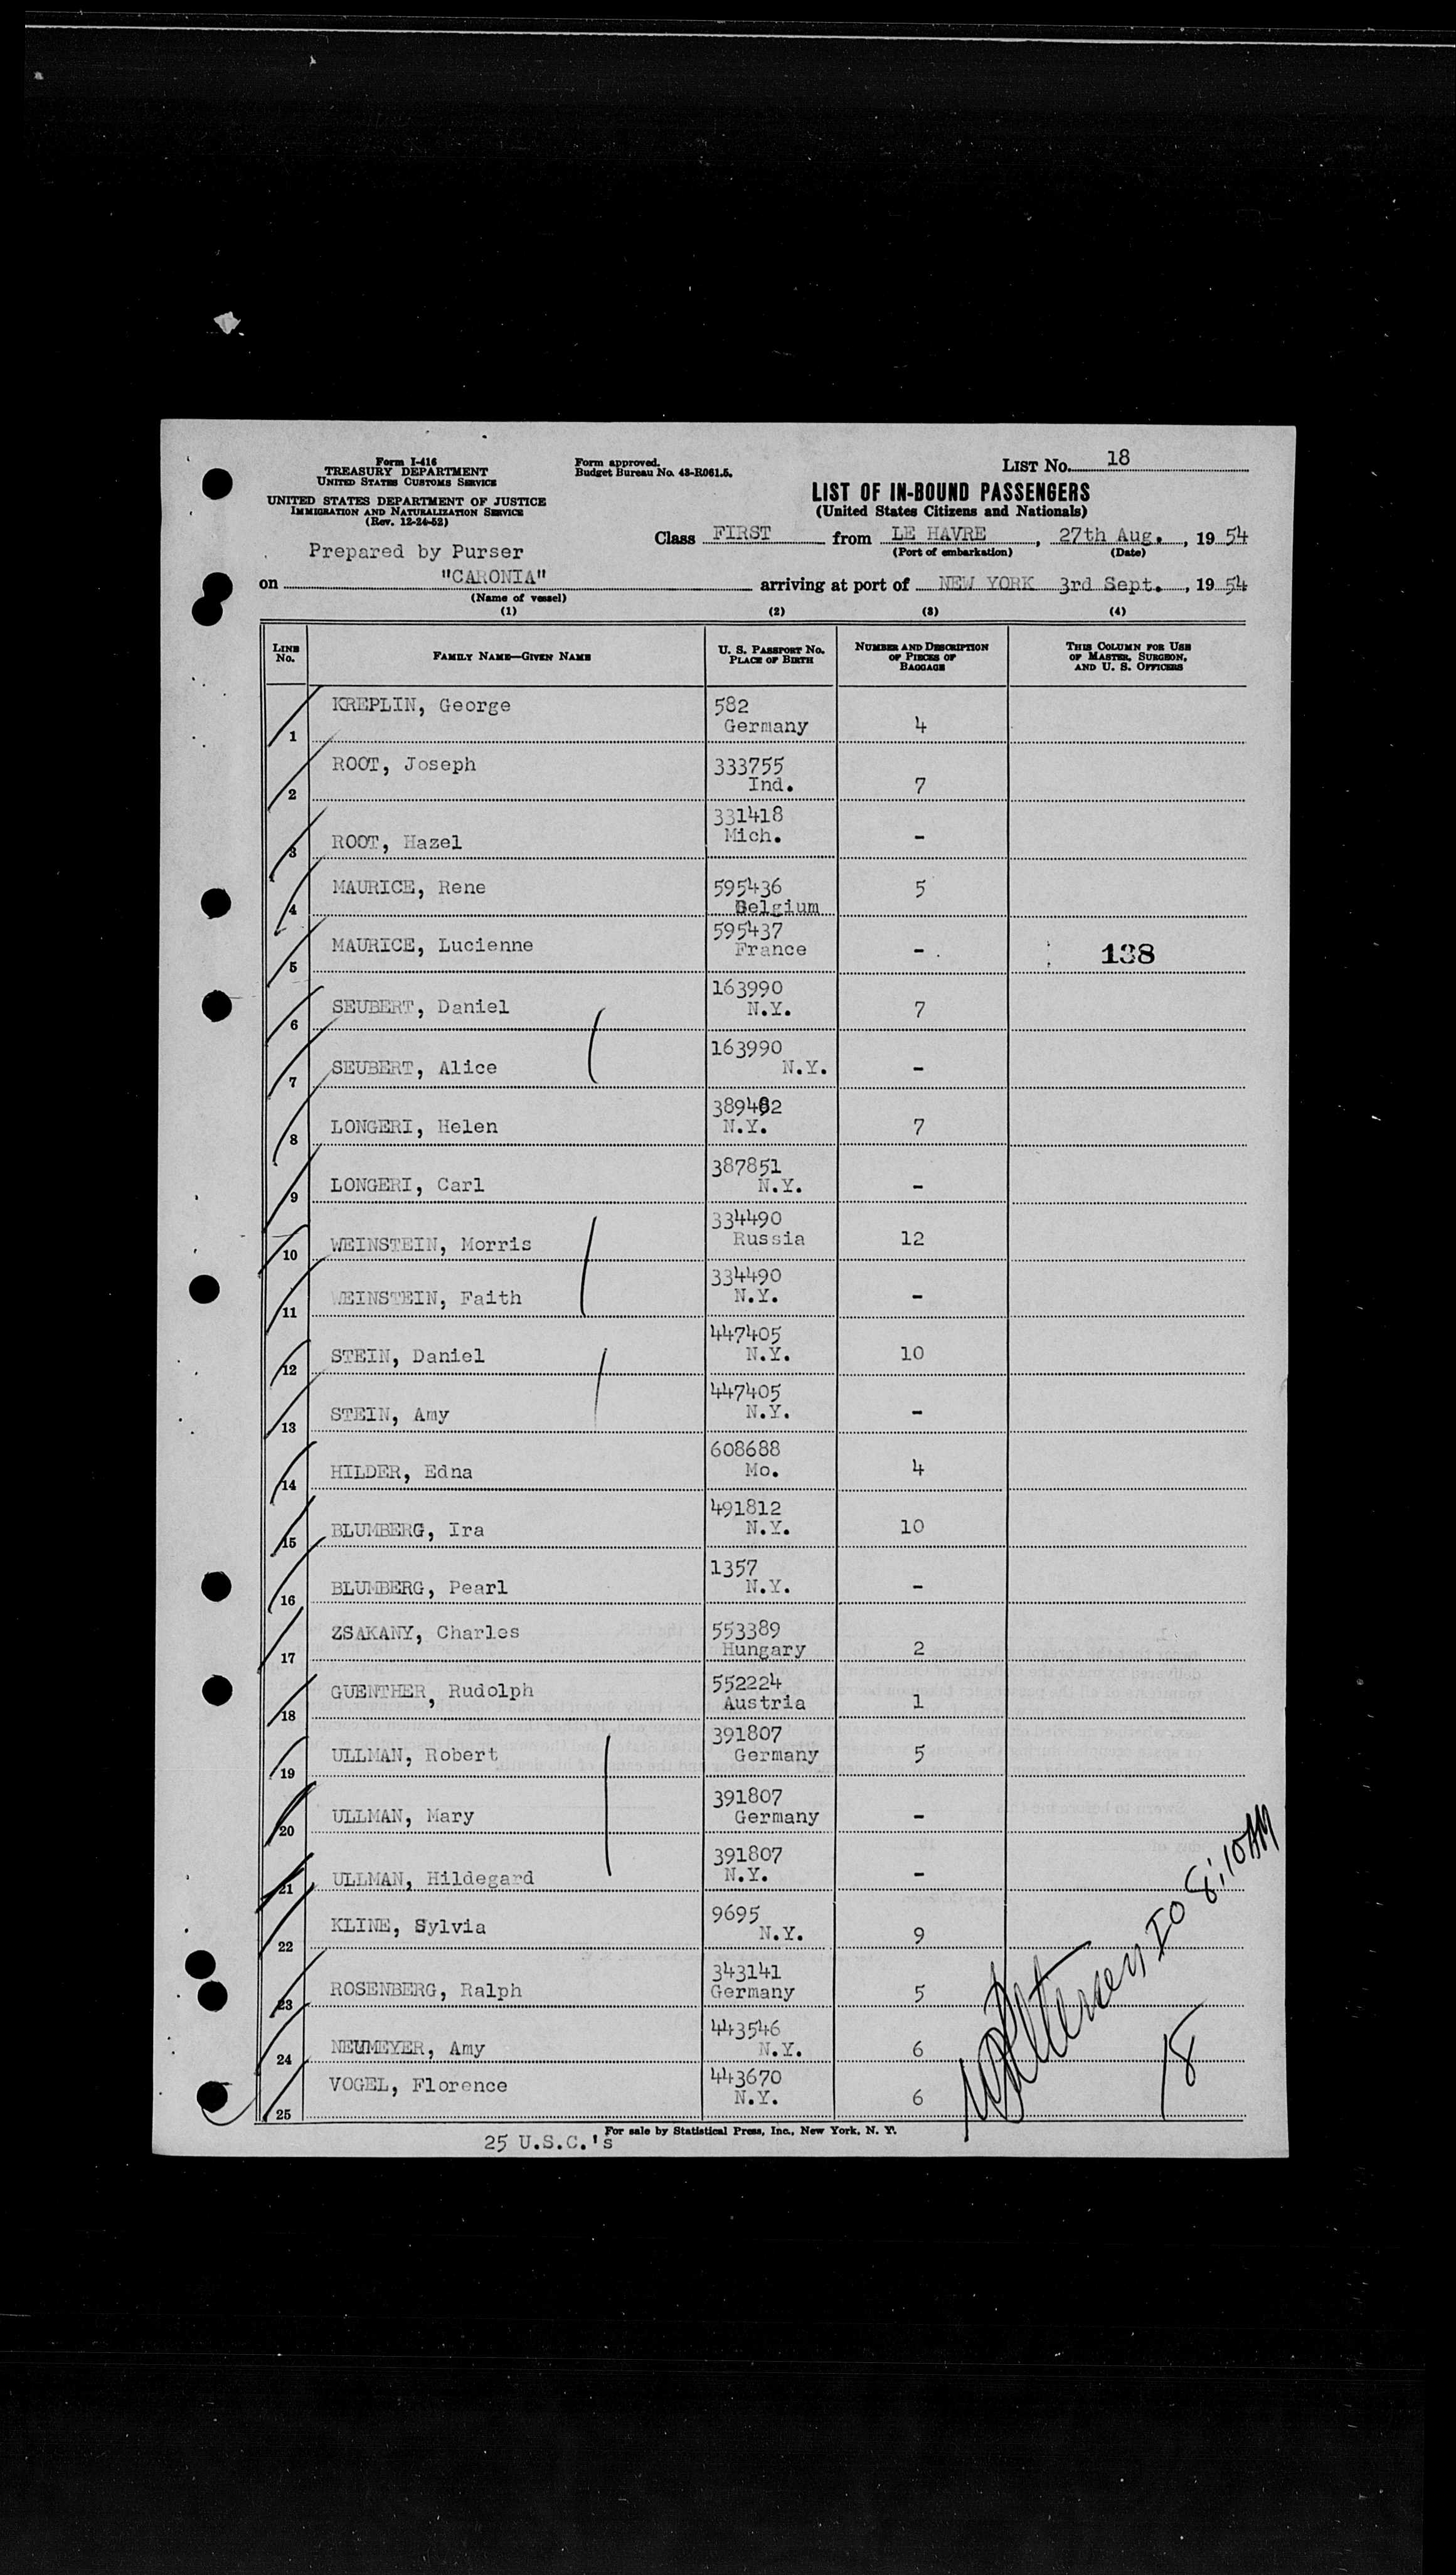 Form I-416
TREASURY DEPARTMENT
UNITED STATES CUSTOMS SERVICE
UNITED STATES DEPARTMENT OF JUSTICE
IMMIGRATION AND NATURALIZATION SERVICE
(Rev. 12-24-52)
Form approved.
Budget Bureau No. 43-R061.5.
LIST No. 18
LIST OF IN-BOUND PASSENGERS
(United States Citizens and Nationals)
Class FIRST from LE HAVRE, 27th Aug., 1954
(Port of embarkation) (Date)
Prepared by Purser
on "CARONIA" arriving at port of NEW YORK 3rd Sept., 1954
(Name of vessel)
(1) (2) (3) (4)
LINE No. FAMILY NAME—GIVEN NAME U. S. PASSPORT No. PLACE OF BIRTH NUMBER AND DESCRIPTION OF PIECES OF BAGGAGE THIS COLUMN FOR USE OF MASTER, SURGEON, AND U. S. OFFICERS
1 KREPLIN, George 582 Germany 4
2 ROOT, Joseph 333755 Ind. 7
3 ROOT, Hazel 331418 Mich. -
4 MAURICE, Rene 595436 Belgium 5
5 MAURICE, Lucienne 595437 France - 138
6 SEUBERT, Daniel 163990 N.Y. 7
7 SEUBERT, Alice 163990 N.Y. -
8 LONGERI, Helen N.Y. 7
9 LONGERI, Carl 387851 N.Y. -
10 WEINSTEIN, Morris 334490 Russia 12
11 WEINSTEIN, Faith 334490 N.Y. -
12 STEIN, Daniel 447405 N.Y. 10
13 STEIN, Amy 447405 N.Y. -
14 HILDER, Edna 608688 Mo. 4
15 BLUMBERG, Ira 491812 N.Y. 10
16 BLUMBERG, Pearl 1357 N.Y. -
17 ZSAKANY, Charles 553389 Hungary 2
18 GUENTHER, Rudolph 552224 Austria 1
19 ULLMAN, Robert 391807 Germany 5
20 ULLMAN, Mary 391807 Germany -
21 ULLMAN, Hildegard 391807 N.Y. -
22 KLINE, Sylvia 9695 N.Y. 9
23 ROSENBERG, Ralph 343141 Germany 5
24 NEUMEYER, Amy 443546 N.Y. 6
25 VOGEL, Florence 443670 N.Y. 6
8:10 AM
18
For sale by Statistical Press, Inc., New York, N. Y.
25 U.S.C.'s